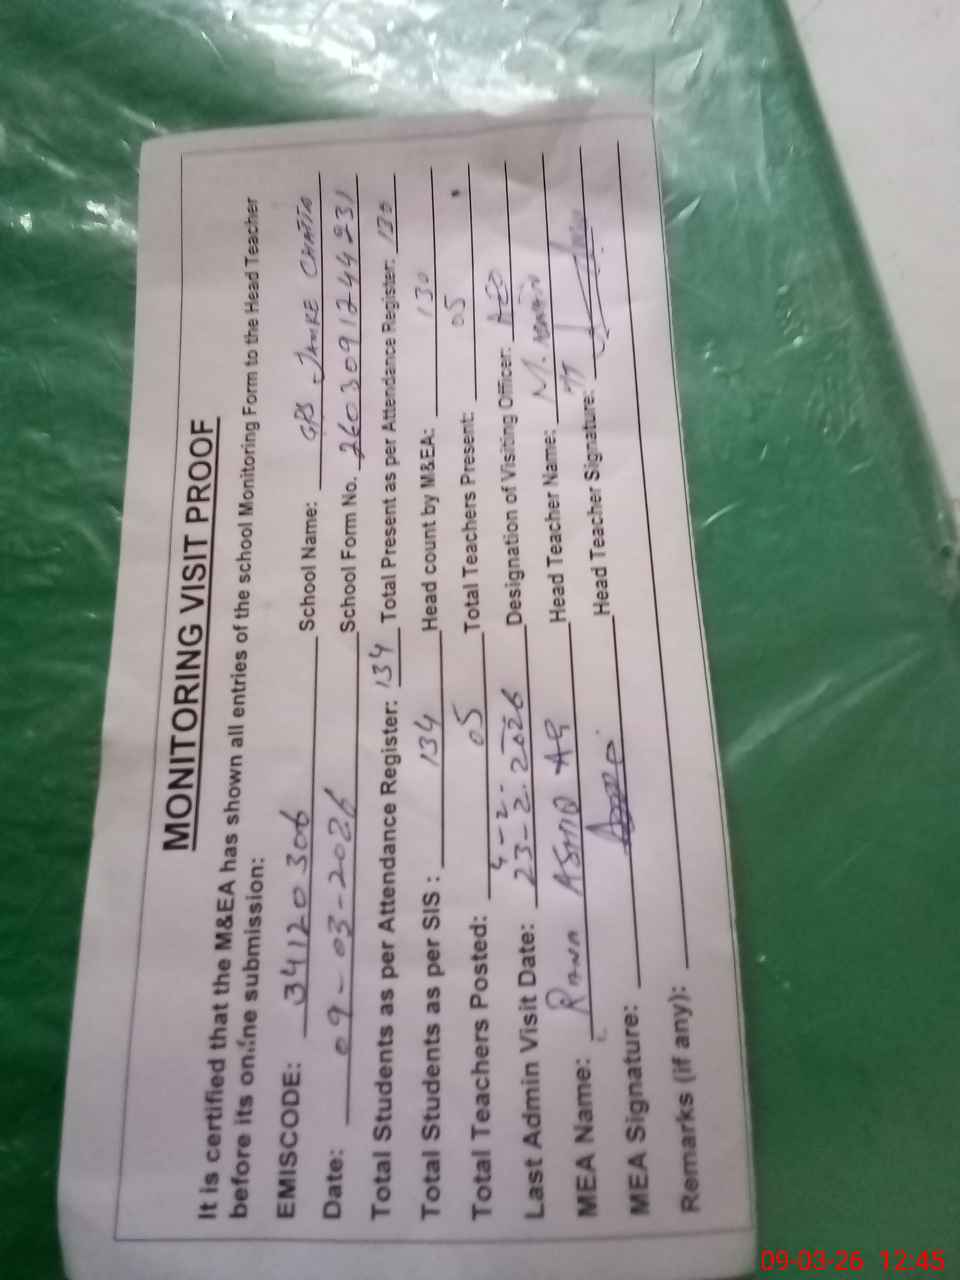 MONITORING VISIT PROOF
It is certified that the M&EA has shown all entries of the school Monitoring Form to the Head Teacher
before its online submission:
EMISCODE: 34120306 School Name: GPS JAMKE CHATTA
Date: 09-03-2026 School Form No. 2603091244231
Total Students as per Attendance Register: 134 Total Present as per Attendance Register: 130
Total Students as per SIS: 134 Head count by M&EA: 130
Total Teachers Posted: 05 Total Teachers Present: 05
Last Admin Visit Date: 23-2-2026 Designation of Visiting Officer: AEO
MEA Name: Rana Head Teacher Name: M.
MEA Signature: Head Teacher Signature:
Remarks (if any):
09-03-26 12:45